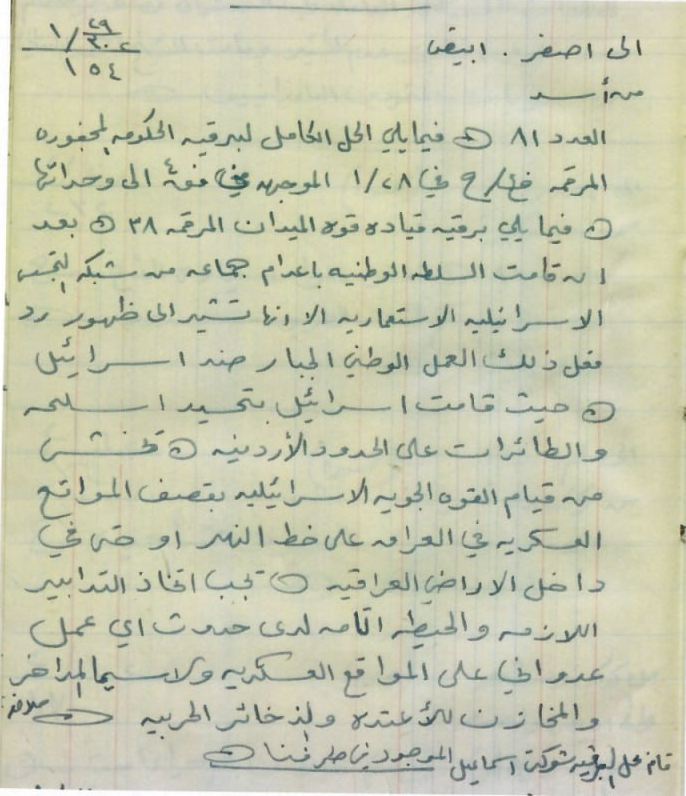 ١/٢٩
٣٠٠٢
١٥٤
الى اصفر . ابيض
من أسد
العدد ٨١ ه فيما يلي الحل الكامل لبرقيه الحكومه
المرقمه في ١/٢٨ الموجهه الى وحداتها
ه فيما يلي برقيه قياده قوه الميدان المرقمه ٣٨ ه بعد
ان قامت السلطه الوطنيه باعدام جماعه من شبكه التجسس
الاسرائيليه الاستعماريه الا انها تشير الى ظهور رد
فعل ذلك العمل الوطني الجبار ضد اسرائيل
ه حيث قامت اسرائيل بتحشيد اسلحه
والطائرات على الحدود الأردنيه ه نخشى
من قيام القوه الجويه الاسرائيليه بقصف المواقع
العسكريه في العراق على خط النهر او حتى في
داخل الاراضي العراقيه ه يجب اتخاذ التدابير
اللازمه والحيطه التامه لدى حدوث اي عمل
عدواني على المواقع العسكريه ولاسيما المداخر
والمخازن للأعتده والذخائر الحربيه ه
قام بحل البرقيه شوكت اسماعيل الموجود في طرفنا ه